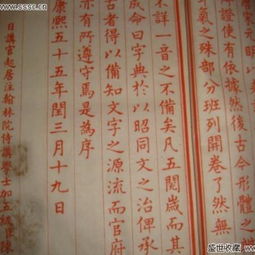 宋元明以
證使有依據然後古今形體之
聲氣之殊部分班列開卷了然無
詳一音之不備矣凡五閱歲而其
成命曰字典於以昭同文之治俾承
古者得以備知文字之源流而官府
亦有所遵守焉是為序
康熙五十五年閏三月十九日
日講官起居注翰林院侍講學士加五級臣陳
盛世收藏